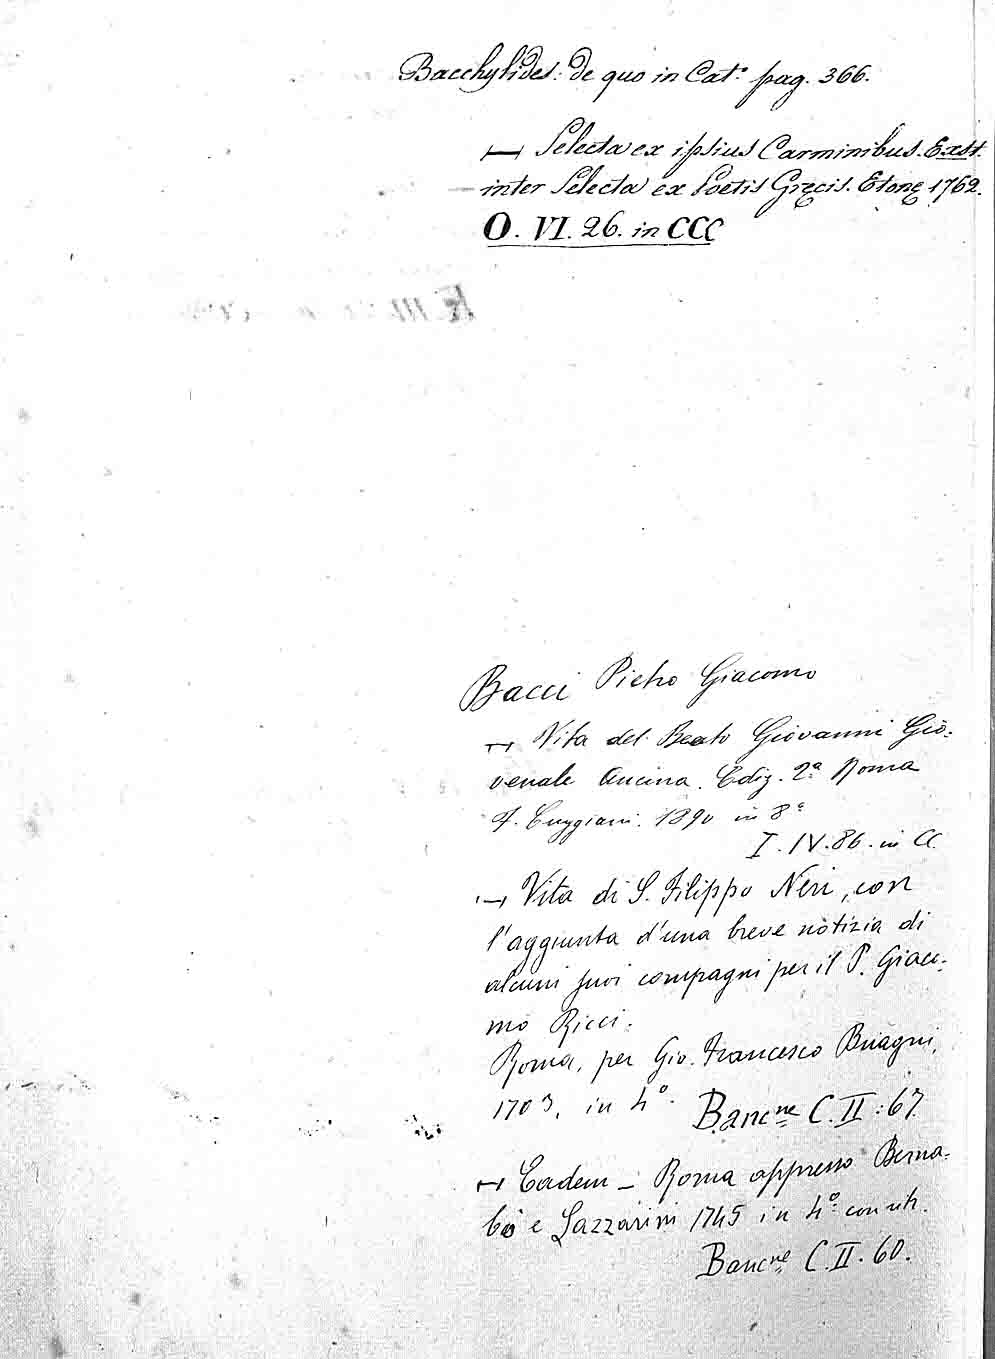 Bacchylides. de quo in Cat.º pag. 366.
— Selecta ex ipsius Carminibus. Exst.
inter Selecta ex Poetis Gręcis. Etonę 1762.
O. VI. 26. in CCC
Bacci Pietro Giacomo
— Vita del Beato Giovanni Gio-
venale Ancina. Ediz. 2ª Roma
F. Cuggiani. 1890 in 8º
I. IV. 86. in CC.
— Vita di S. Filippo Neri, con
l'aggiunta d'una breve notizia di
alcuni suoi compagni per il P. Giaco-
mo Ricci.
Roma, per Gio. Francesco Buagni,
1703, in 4º.
Bancne C. II. 67.
— Eadem — Roma appresso Berna-
bò e Lazzarini 1745 in 4º con rit.
Bancne C. II. 60.